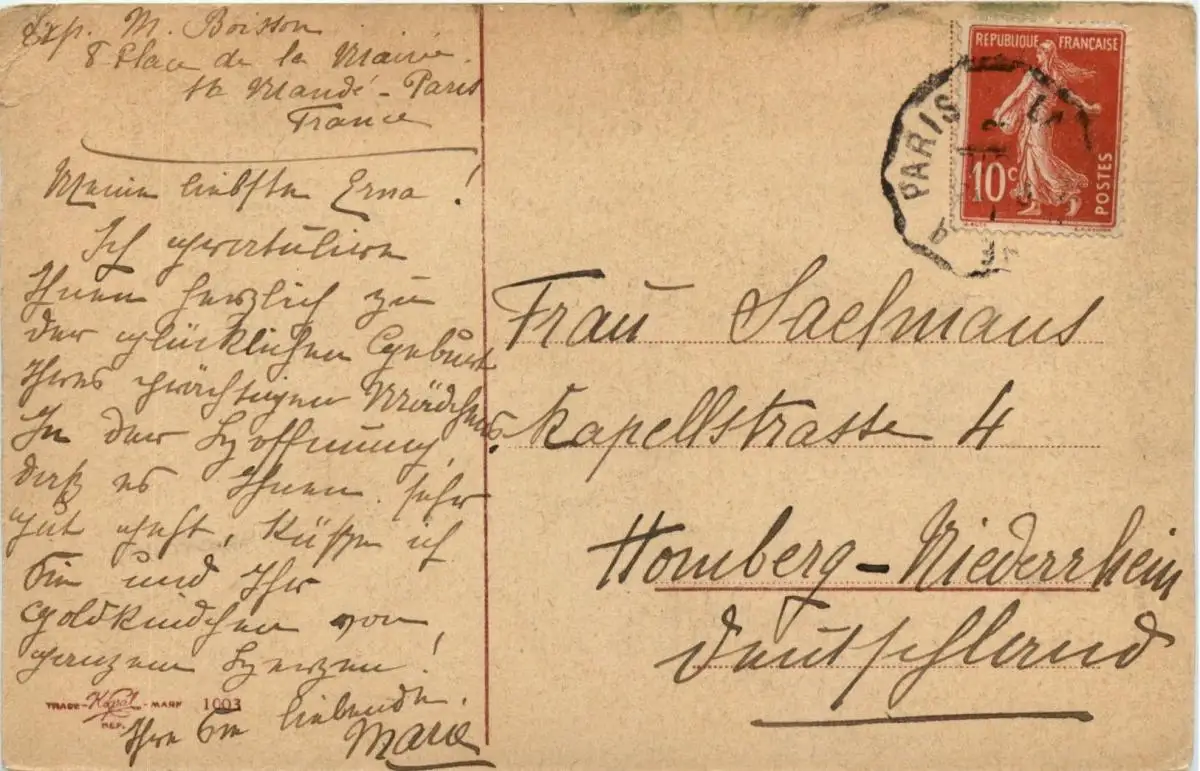 Exp. M. Boisson
8 Place de la Mairie.
St Mandé - Paris
France
Meine liebste Erna!
Ich gratuliere
Ihnen herzlich zu
der glücklichen Geburt
Ihres prächtigen Mädchens.
In der Hoffnung,
daß es Ihnen sehr
gut geht, küsse ich
Sie und Ihr
Goldkindchen von
ganzem Herzen!
Ihre Sie liebende.
Marie
TRADE-Kopal-MARK 1003
DEP.
REPUBLIQUE FRANÇAISE
10c
POSTES
PARIS
Frau Saelmans
Kapellstrasse 4
Homberg-Niederrhein
Deutschland